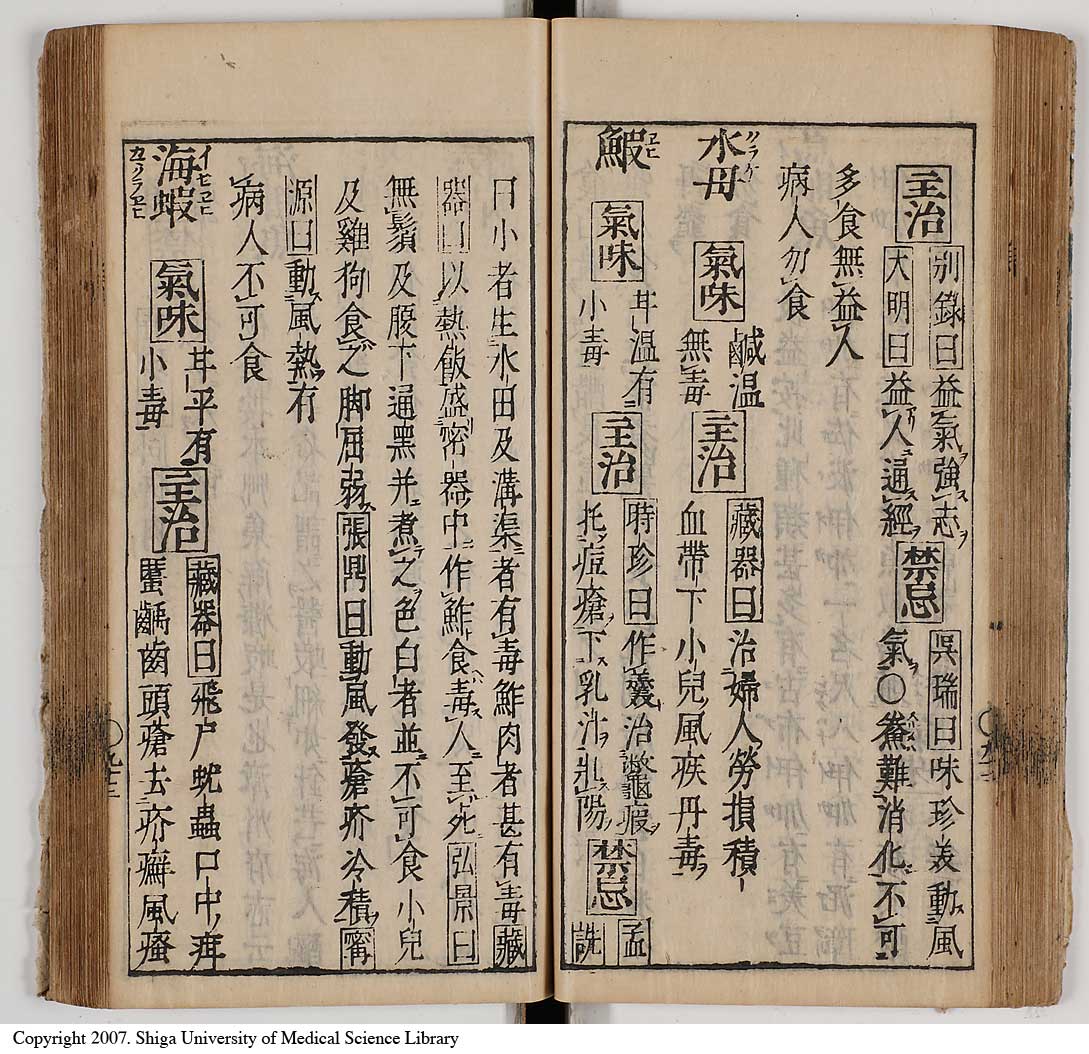 主治
別錄曰益氣強志
大明曰益人通經
禁忌
吳瑞曰味珍美動風
氣○鮝難消化不可
多食無益人
病人勿食
水母
クラゲ
氣味
鹹温
無毒
主治
藏器曰治婦人勞損積
血帶下小兒風疾丹毒
鰕
ヱヒ
氣味
甘温有
小毒
主治
時珍曰作羹治鼈瘕
托痘瘡下乳汁壯陽
禁忌
孟
詵
曰小者生水田及溝渠者有毒鮓肉者甚有毒藏
器曰以熱飯盛密器中作鮓食毒人至死弘景曰
無鬚及腹下通黑并煮之色白者並不可食小兒
及雞狗食之脚屈弱張鼎曰動風發瘡疥冷積甯
源曰動風熱有
病人不可食
海蝦
イセヱヒ
氣味
甘平有
小毒
主治
藏器曰飛尸蚘蟲口中疳
䘌齲齒頭瘡去疥癬風瘙
〇九十三
Copyright 2007. Shiga University of Medical Science Library